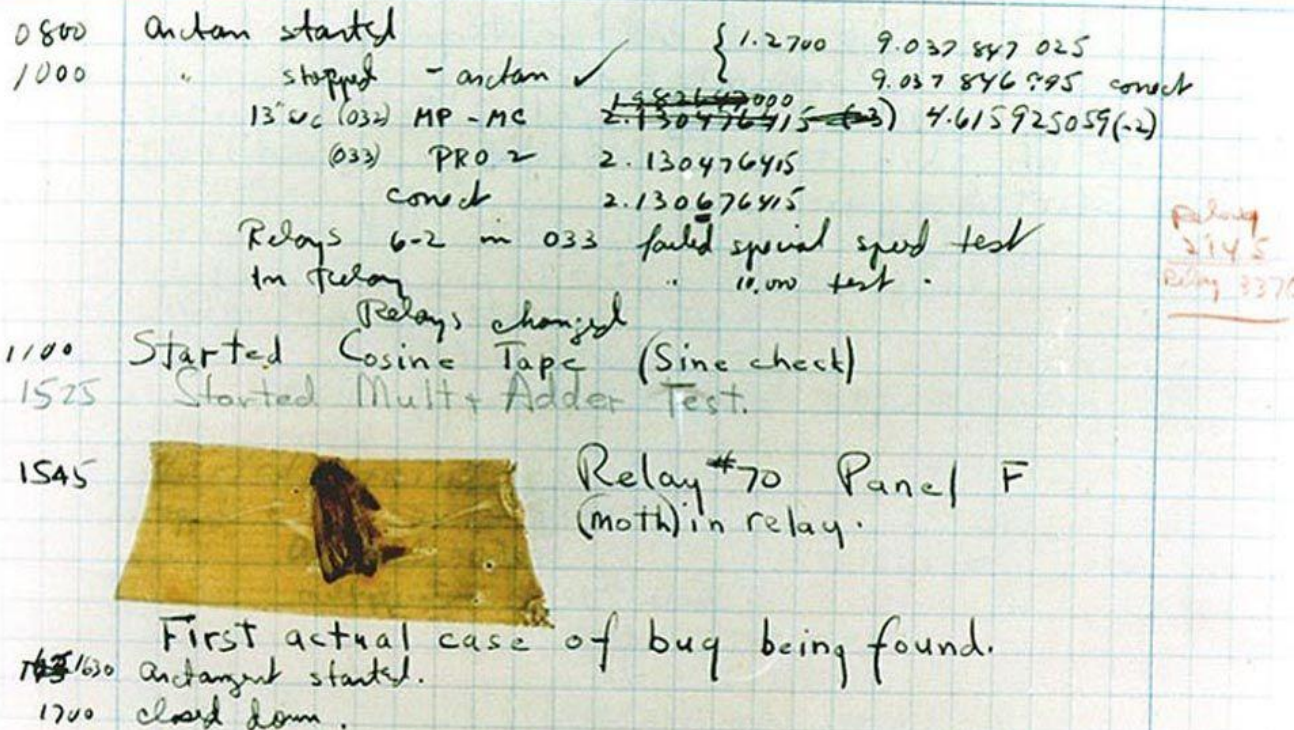 0800 antan started { 1.2700 9.037 847 025
1000 " stopped - antan ✓ 9.037 846 995 correct
(032) MP - MC 2.130476415 (-3) 4.615925059(-2)
(033) PRO 2 2.130476415
correct 2.130676415
Relays 6-2 in 033 failed special speed test
In Relay " 10.000 test .
Relay
2145
Relay 3370
Relays changed
1100 Started Cosine Tape (Sine check)
1525 Started Mult + Adder Test.
1545 Relay #70 Panel F
(moth) in relay.
First actual case of bug being found.
1630 antangent started.
1700 closed down.